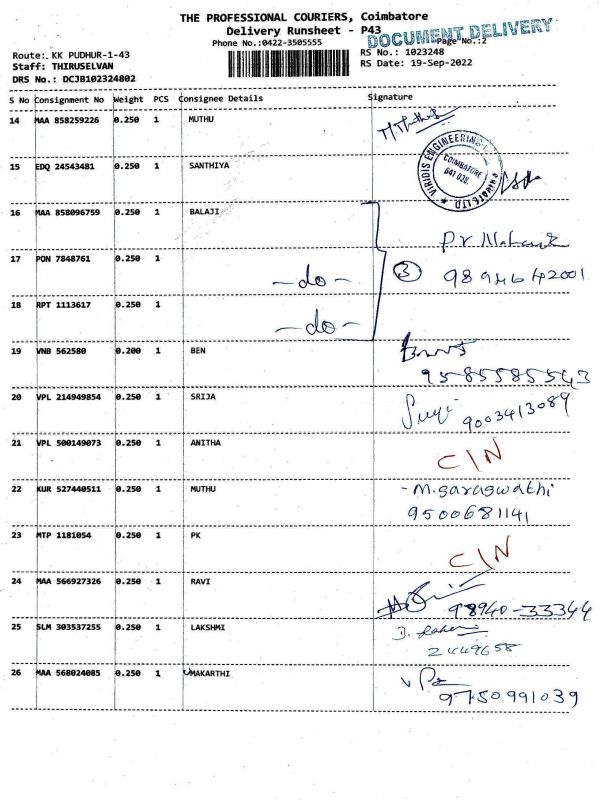 THE PROFESSIONAL COURIERS, Coimbatore
Delivery Runsheet - P43
DOCUMENT DELIVERY
Phone No.:0422-3505555
Page No.:2
Route: KK PUDHUR-1-43
RS No.: 1023248
Staff: THIRUSELVAN
RS Date: 19-Sep-2022
DRS No.: DCJB102324802
S No Consignment No Weight PCS Consignee Details Signature
14 MAA 858259226 0.250 1 MUTHU
VIRIDIS ENGINEERING PRIVATE LTD.
COIMBATORE
641 038.
15 EDQ 24543481 0.250 1 SANTHIYA
16 MAA 858096759 0.250 1 BALAJI
17 PON 7848761 0.250 1
-do- 3 9894642001
18 RPT 1113617 0.250 1
-do-
19 VNB 562580 0.200 1 BEN
9585585543
20 VPL 214949854 0.250 1 SRIJA
9003413089
21 VPL 500149073 0.250 1 ANITHA
C/N
22 KUR 527440511 0.250 1 MUTHU - M.Saraswathi
9500681141
23 MTP 1181054 0.250 1 PK
C/N
24 MAA 566927326 0.250 1 RAVI
98940-33344
25 SLM 303537255 0.250 1 LAKSHMI
2449658
26 MAA 568024085 0.250 1 UMAKARTHI
9750991039